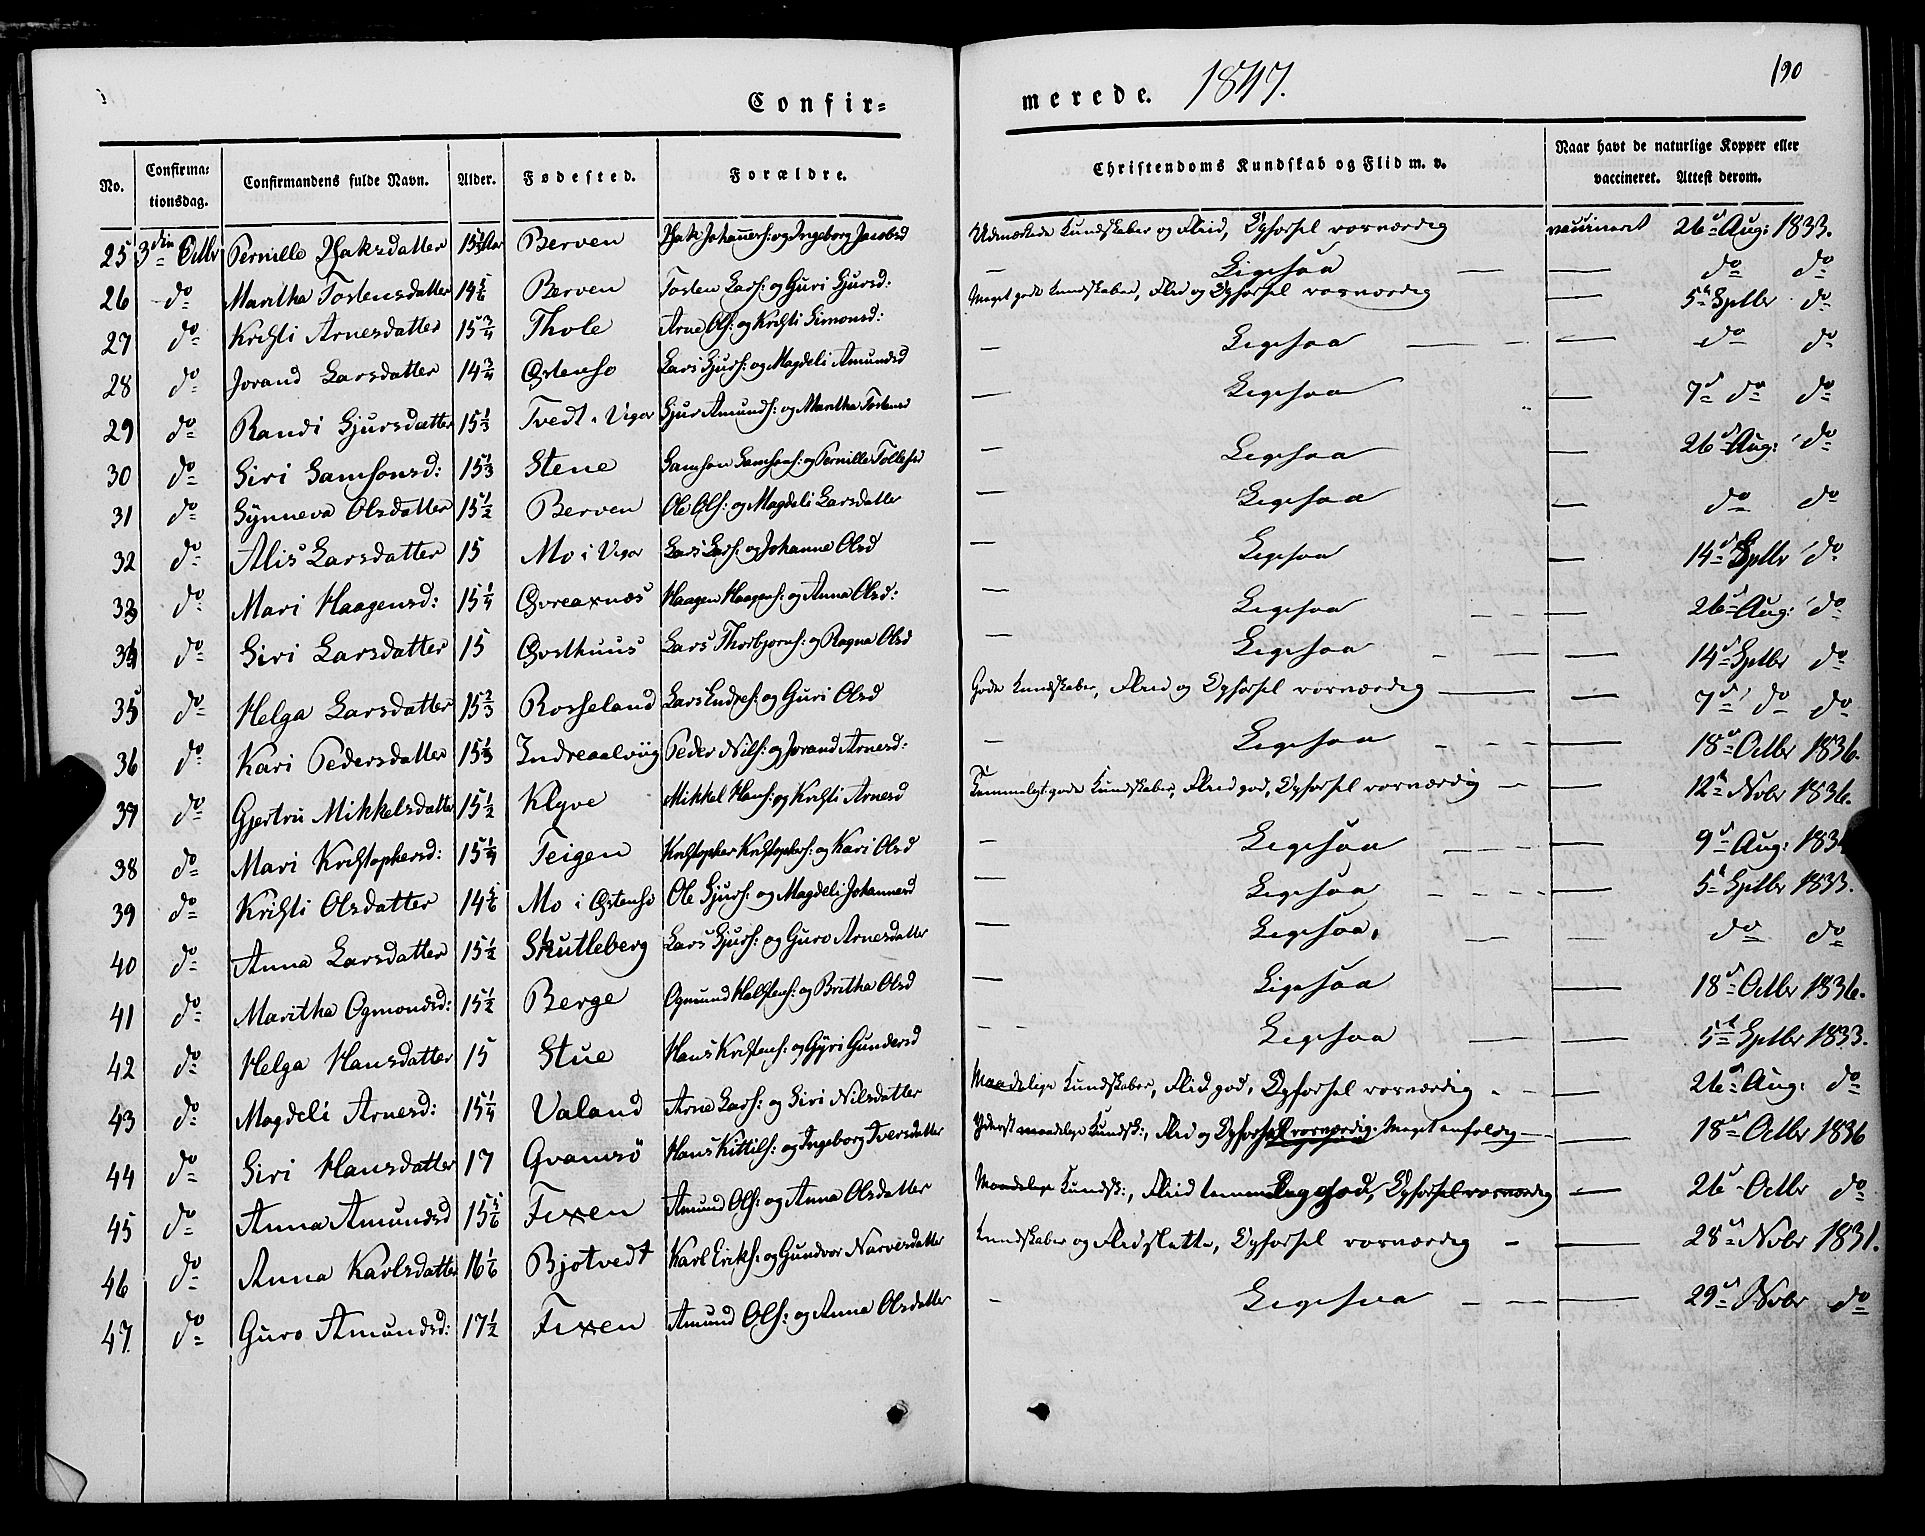 190
Confir= merede. 1847.
No. Confirma=tionsdag. Confirmandens fulde Navn. Alder. Fødested. Forældre. Christendoms Kundskab og Flid m. v. Naar havt de naturlige Kopper eller vaccineret. Attest derom.
25 3die Octbr Pernille Isaksdatter Berven Isak Johannes: og Ingeborg Jacobsd Udmærkede Kundskaber og Flid, Opførsel rosværdig vaccineret 26d Aug: 1833.
26 do Maritha Tostensdatter 14 5/6 Berven Tosten Lars: og Guri Sjursd: — Ligesaa — — do do
27 do Kristi Arnesdatter 15 3/4 Thole Arne Ols: og Kristi Simonsd: Meget gode Kundskaber, Flid og Opførsel rosværdig — 5t Septbr do
28 do Jorand Larsdatter 14 3/4 Østensø Lars Sjurs: og Magdeli Amundsd — Ligesaa — — do do
29 do Randi Sjursdatter 15 1/3 Tvedt i Vigør Sjur Amunds: og Maritha Tostensd — Ligesaa — 7d do do
30 do Siri Samsonsd: 15 1/3 Stene Samson Samsons: og Pernille Tollefsd — Ligesaa — 26d Aug: do
31 do Synneva Olsdatter 15 1/2 Berven Ole Ols: og Magdeli Larsdatter — Ligesaa — do do
32 do Alis Larsdatter 15 Mo i Vigør Lars Lars: og Johanne Olsd — Ligesaa — 14d Septbr do
33 do Mari Haagensd: 15 1/4 Øvreaxnæs Haagen Haagens: og Anna Olsd: — Ligesaa — — 26d Aug: do
34 do Siri Larsdatter 15 Østhuus Lars Thorbjørns: og Ragna Olsd — Ligesaa — — 14d Septbr do
35 do Helga Larsdatter 15 2/3 Rosseland Lars Endres: og Guri Olsd Gode Kundskaber, Flid og Opførsel rosværdig — — 7d do do
36 do Kari Pedersdatter 15 1/3 Indreaalviig Peder Nils: og Jorand Arnesd: — Ligesaa — — 18d Octbr 1836.
37 do Gjertru Mikkelsdatter 15 1/2 Klyve Mikkel Hans: og Kristi Arnesd Temmeligt gode Kundskaber, Flid god, Opførsel rosværdig — — 12t Novbr 1836.
38 do Mari Kristophersd: 15 1/4 Teigen Kristopher Kristophers: og Kari Olsd — Ligesaa — — 9d Aug:
39 do Kristi Olsdatter 14 5/6 Mo i Østensø Ole Sjurs: og Magdeli Johannesd — Ligesaa — — 5t Septbr 1833.
40 do Anna Larsdatter 15 1/2 Skutleberg Lars Sjurs: og Guro Arnesdatter — Ligesaa, — — do do
41 do Maritha Ogmondsd: 15 1/2 Berge Ogmund Halstens: og Britha Olsd — Ligesaa — 18d Octbr 1836.
42 do Helga Hansdatter 15 Stue Hans Kristens: og Gyri Gundersd — — Ligesaa — — 5t Septbr 1833.
43 do Magdeli Arnesd: 15 1/4 Valand Arne Lars: og Siri Nilsdatter Maadelige Kundskaber, Flid god, Opførsel rosværdig — — 26d Aug: do
44 do Siri Hansdatter 17 Qvamsö Hans Kittils: og Ingeborg Iversdatter Yderst maadelige Kundsk:, Flid og Opførsel rosværdig. Meget enfoldig — — 18d Octbr 1836
45 do Anna Amundsd 15 5/6 Fixen Amund Ols: og Anna Olsdatter Maadelige Kundsk:, Flid temmelig god, Opførsel rosværdig — 26d Octbr do
46 do Anna Karlsdatter 16 1/6 Bjotvedt Karl Eriks: og Gundvor Narvesdatter Kundskaber og Flid slette, Opførsel rosværdig — — 28d Novbr 1831.
47 do Guro Amundsd: 17 1/2 Fixen Amund Ols: og Anna Olsdatter — Ligesaa — — 29d Novbr do